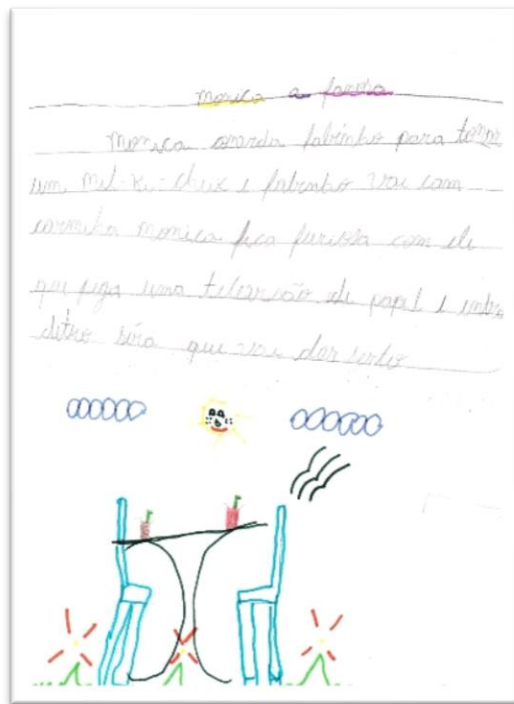 monica a famosa
monica omarda fabinho para tomar
um mil-ki-cheix e fabinho vai com
carminha monica fica furiosa com ele
que pega uma televisão de papel e entra
detro sira que vai dar serto